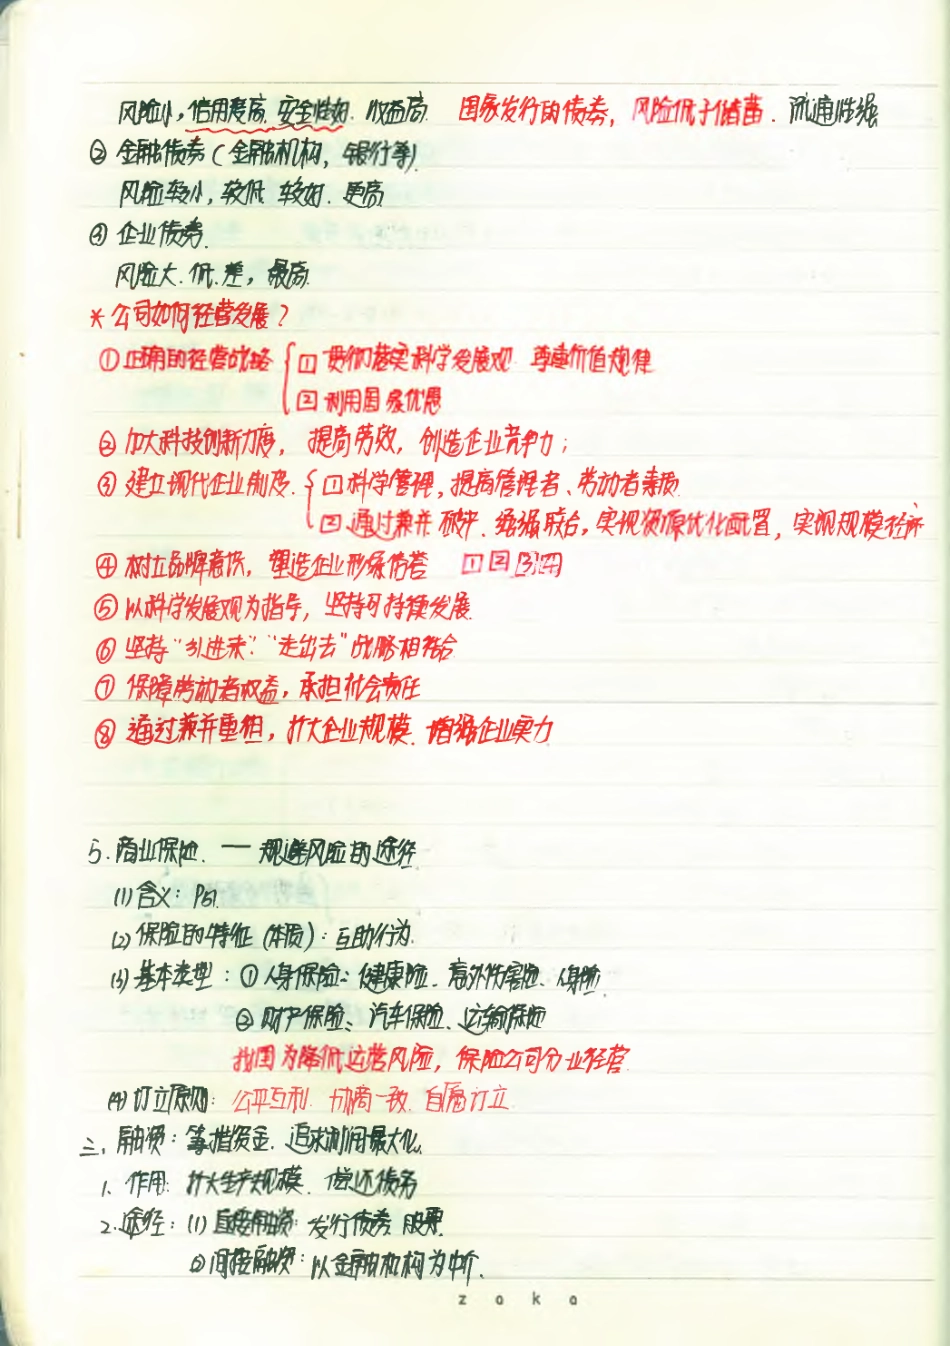 风险小,信用度高.安全性好.收益高. 国家发行的债券,风险低于储蓄.流通性强
② 金融债券(金融机构,银行等)
风险较小,较低 较好.更高
③ 企业债券.
风险大.低.差,最高.
* 公司如何经营发展?
①正确的经营战略 { 1 贯彻落实科学发展观 尊重价值规律
2 利用国家优惠
② 加大科技创新力度,提高劳效,创造企业竞争力;
③ 建立现代企业制度. { 1 科学管理,提高管理者、劳动者素质.
2 通过兼并 破产.强强联合,实现资源优化配置,实现规模经济
④ 树立品牌意识,塑造企业形象信誉 1 2 3 4
⑤ 以科学发展观为指导,坚持可持续发展.
⑥ 坚持“引进来”.“走出去”战略相结合.
⑦ 保障劳动者权益,承担社会责任
⑧ 通过兼并重组,扩大企业规模.增强企业实力
5.商业保险. — 规避风险的途径.
(1)含义:P51.
(2)保险的特征(本质):互助行为.
(3)基本类型:①人身保险:健康险、意外伤害险、人身险.
②财产保险:汽车保险、运输保险
我国为降低运营风险,保险公司分业经营.
(4)订立原则:公平互利.协商一致.自愿订立.
三、融资:筹措资金.追求利润最大化.
1、作用:扩大生产规模.偿还债务
2.途径:(1)直接融资:发行债券.股票.
②间接融资:以金融机构为中介.
zaka